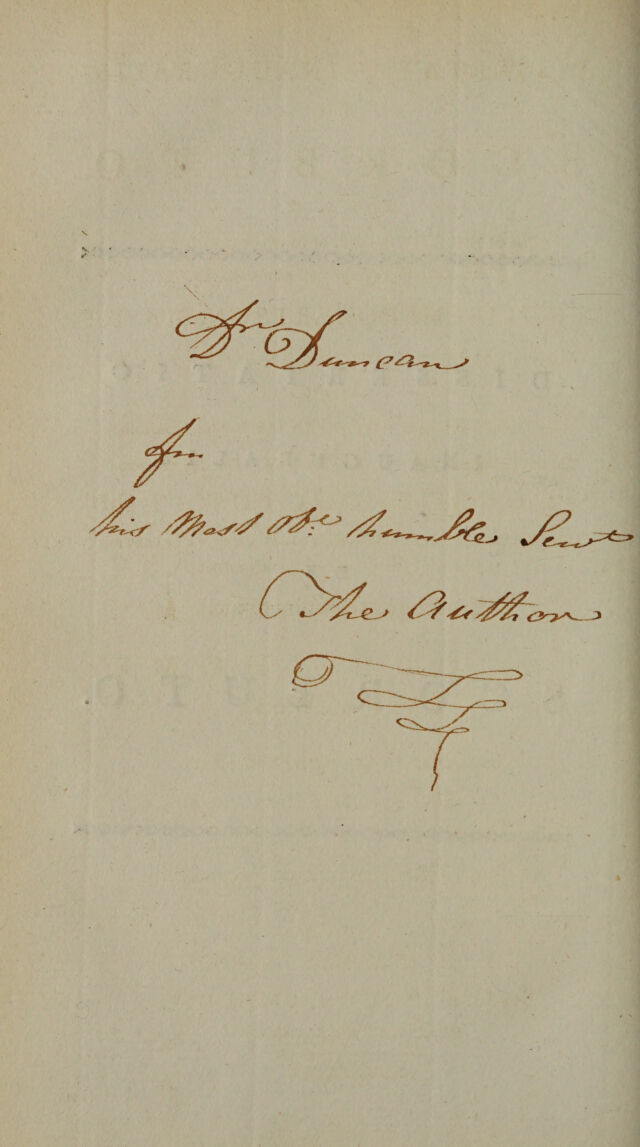 Dr Duncan
fm
his Most Obe. humble Servt
The Author